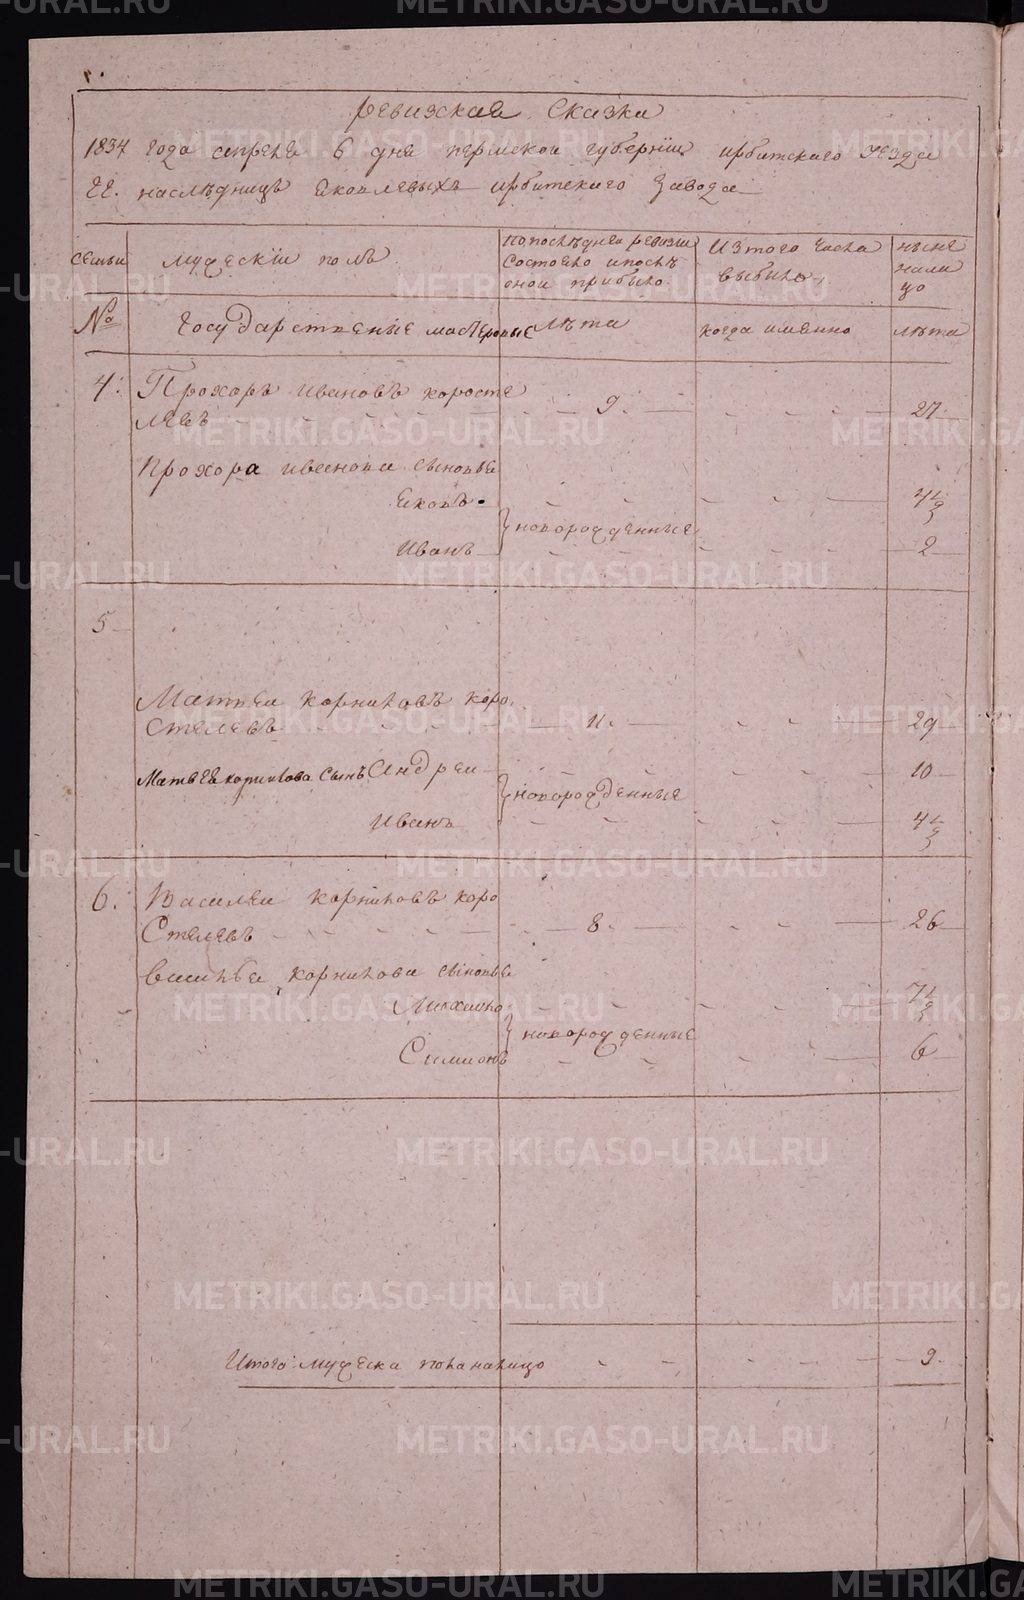 Ревизская Сказка
1834 года апреля 6 дня пермской губернии ирбитского уезда
ГГ. наследницъ яковлевыхъ ирбитского завода
семьи
мужескiи полъ
по последнеи ревизии
Состояло и после
оной прибыло
Изтого числа
выбыло
ныне
нали
цо
№
Государственые мастеровые
лета
когда имянно
лета
4.
Прохоръ ивановъ коросте
левъ
9.
27
Прохора иванова сыновья
яковъ
4 1/2
новорожденные
Иванъ
2
5
Матвеи корниловъ коро
Стелевъ
11.
29
Матвея корнилова сынъ Андреи
10
новорожденныя
Иванъ
4 1/2
6.
Василеи корниловъ коро
Стелевъ
8.
26
василья корнилова сыновья
Михаило
7 1/2
новорожденные
Симионъ
6
Итого мужеска пола налицо
9.
METRIKI.GASO-URAL.RU